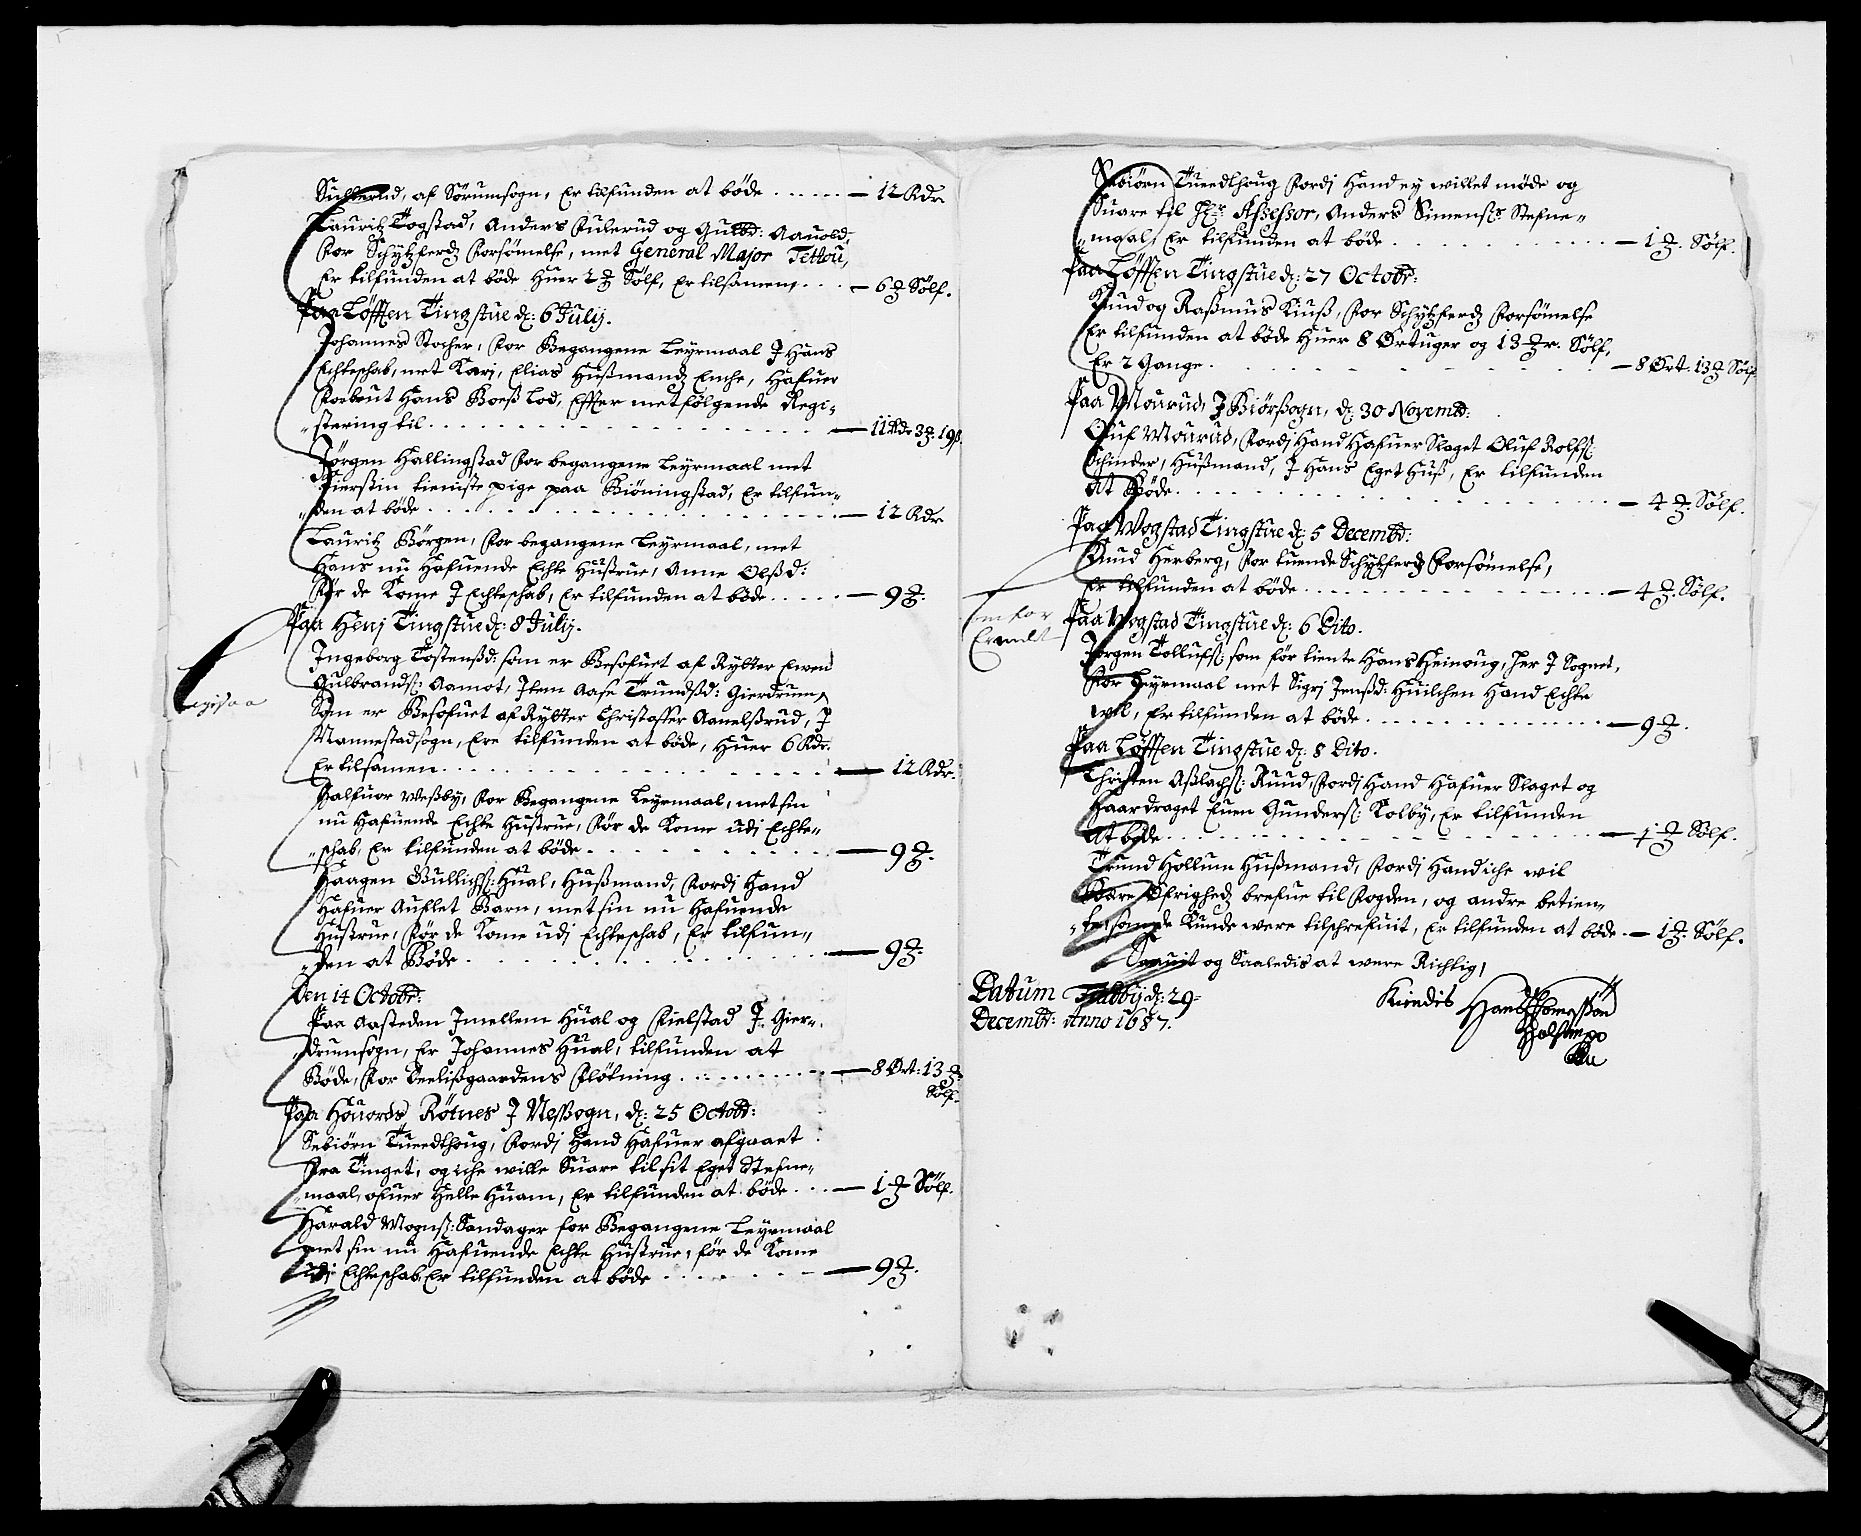 af Sørumsogn, Er tilfunden at bøde . . . . . — 12 Rdr
Lauritz Togstad, Anders Fulerud og Gulbr: Aauold,
For Schytzferdz Forsømelse, met General Major Tettou,
Er tilfunden at bøde Huer 2 Sølf, Er tilsamen, . . . — 6 Sølf.
Paa Løffsen Tingstue d: 6 Julij.
Johannes Stocher, For Begangene Leyrmaal J Hans
Echteschab, met Kari, Elias Husmandz Enche, Hafuer
Hans Boess Lod, Effter metfølgende Regi-
stering til . . . . . — 11 Rdr 3. 19 s.
Jørgen Hallingstad For begangene Leyrmaal met
Kierstin tieniste pige paa Kiøningstad, Er tilfun-
den at bøde . . . . . — 12 Rdr
Lauritz Børgen, For begangene Leyrmaal, met
Hans nu Hafuende Echte Hustrue, Anne Olsd:
Før de Kome J Echteschab, Er tilfunden at bøde . . . . — 9.
Paa Henj Tingstue d: 8 Julij.
Ingeborg Tostensd: som er Besofuet af Rytter Ewen
Gulbrands: Aamot, Item Aase Trundsd: Gierdrum,
Som er Besofuet af Rytter Christoffer Aanelsrud, J
Nannestadsogn, Ere tilfunden at bøde, Huer 6 Rdr.
Er tilsamen . . . . . — 12 Rdr.
Halfuor Wessby, For Begangene Leyrmaal, met sin
nu Hafuende Echte Hustrue, Før de Kome udj Echte-
schab, Er tilfunden at bøde . . . . . — 9.
Haagen Gullichs: Hual, Husmand, Fordj Hand
Hafuer Auflet Barn, met sin nu Hafuende
Hustrue, Før de Kome udj Echteschab, Er tilfun-
den at Bøde . . . . . — 9.
Den 14 Octobr:
Paa Aasteden Imellem Hual og Kielstad J Gier-
drumsogn, Er Johannes Hual, tilfunden at
Bøde, For Fløtning . . . . . — 8 Ort: 13
Sølf.
Paa Houords Røtnes J Nessogn, d: 25 Octobr:
Sebiørn Tueedthoug, Fordj Hand Hafuer afgaaet
Fra Tinget, og iche wille Suare til sit Eget Stefne-
maal, ofuer Helle Huam, Er tilfunden at bøde . . . — 1 Sølf.
Harald Mogns: Sandager for Begangene Leyrmaal
met sin nu Hafuende Echte Hustrue, før de Kome
udj Echteschab, Er tilfunden at bøde . . . . . — 9.
Sebiørn Tueedthoug Fordj Hand ey willet møde og
Suare til Hr. Assessor, Anders Simensøs Stefne-
maal, Er tilfunden at bøde . . . . . — 1 Sølf.
Paa Løffsen Tingstue d: 27 Octobr:
Knud og Rasmus Kius, For Schytzferdz Forsømelse
Er tilfunden at bøde Huer 8 Ørtuger og 13 Sølf,
Er 2 Gange . . . . . — 8 Ørt. 13 Sølf
Paa Mourud, J Biørsogn, d: 30 Novemb:
Oluf Mourud, Fordj Hand Hafuer Slaget Oluf Rolfs:
Schinder, Husmand, J Hans Eget Hus, Er tilfunden
At Bøde . . . . . — 4 Sølf.
Paa Wogstad Tingstue d: 5 Decembr:
Knud Herberg, For tuende Schytzferdz Forsømelse,
Er tilfunden at bøde . . . . . — 4 Sølf.
Paa Wogstad Tingstue d: 6 Dito.
Jørgen Tollufs: som før tiente Hans Heinoug, her J Sognet,
For Leyrmaal met Sigrj Jensd: Huilchen Hand Echte
wil, Er tilfunden at bøde . . . . . — 9.
Paa Løffsen Tingstue d: 8 Dito.
Christen Aslachs: Ruud, Fordj Hand Hafuer Slaget og
Haardraget Euen Gunders: Kolby, Er tilfunden
At bøde . . . . . — 1 Sølf.
Trund Hollum Husmand, Fordj Hand iche wil
Bære Øfrighedz brefue til Fogden, og andre betien-
ter som de Kunde were tilschrefuit, Er tilfunden at bøde — 1 Sølf.
Saauit og Saaledis at were Richtig,
Datum d: 29
Decembr: Anno 1687.
Kiendis